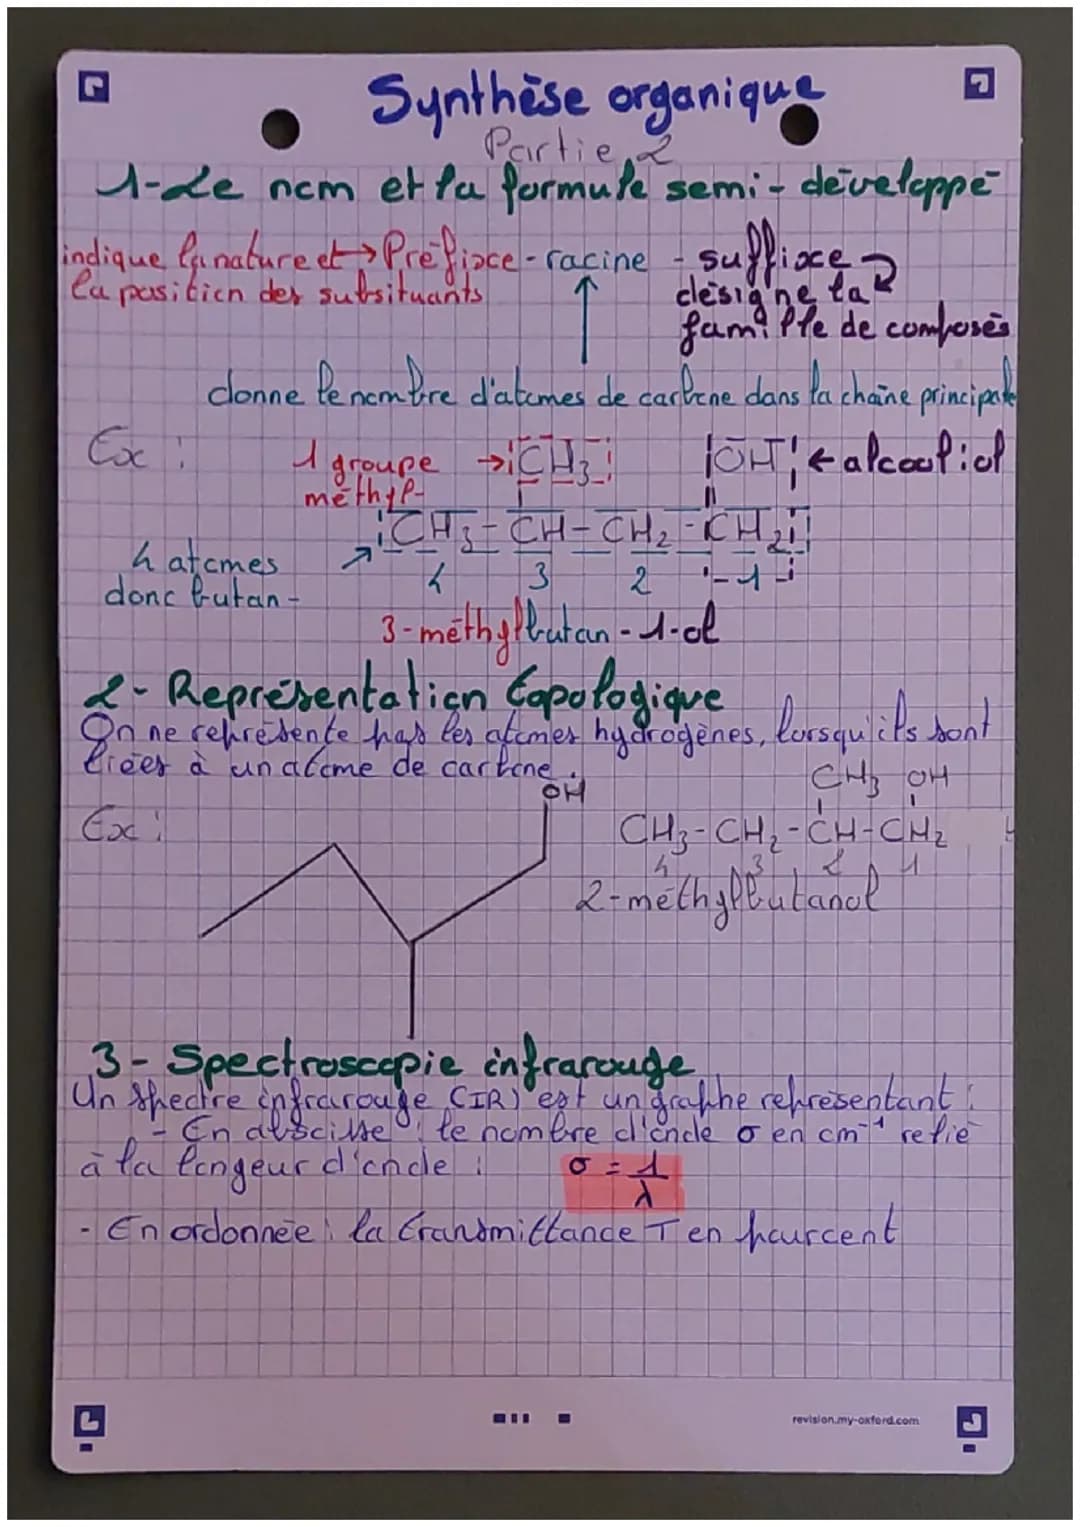 Synthèse organique
Partie 2
1-Le nom et la formule semi-développé
indique la nature et → Préfixe - racine - suffixe
la position des subsituants
désigne la
famille de composés
donne le nombre d'atomes de carbone dans la chaîne principale
Ex :
1 groupe → CH3
méthyl-
OH ← alcool : ol
CH3 - CH - CH2 - CH2
4 atomes
donc butan-
4 3 2 1
3-méthylbutan-1-ol
2- Représentation topologique
On ne représente pas les atomes hydrogènes, lorsqu'ils sont
liées à un atome de carbone.
Ex :
OH
CH3 OH
CH3-CH2-CH-CH2
4 3 2 1
2-méthylbutanol
3- Spectroscopie infrarouge
Un spectre infrarouge (IR) est un graphe représentant :
- En abscisse : le nombre d'onde σ en cm-1 relié
à la longeur d'onde : σ = 1/λ
- En ordonnée : la transmittance T en pourcent
revision.my-oxford.com